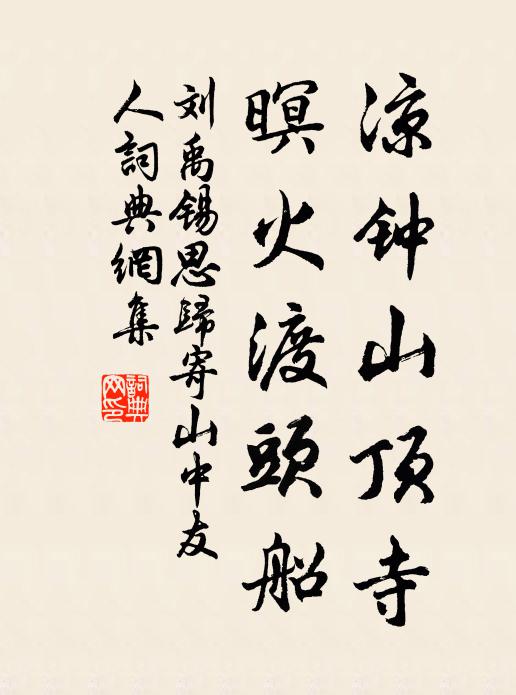 凉钟山顶寺
暝火渡頭船
刘禹锡思歸寄山中友
人詞典網集
詞典
网印